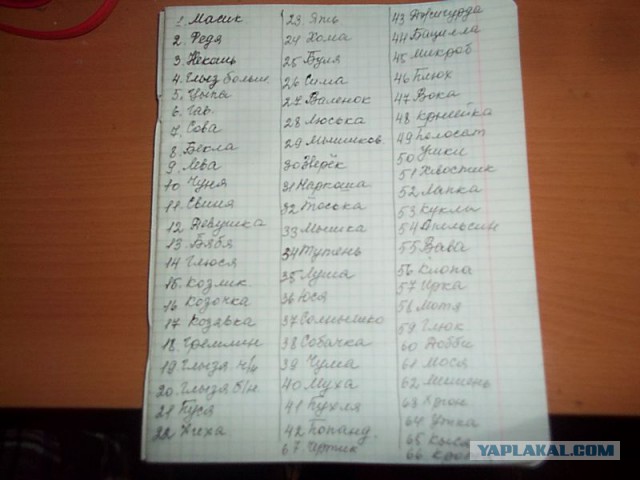 1. Масик
2. Федя
3. Нёкаль
4. Глыз больш.
5. Цыпа
6. Гав.
7. Сова
8. Бекла
9. Лева
10 Чуня
11. Свиня
12 Девушка
13. Бябя
14 Глюся
15. Козлик
16 Козочка
17 Козявка
18. Гремлин
19 Глызя ч/б
20. Глызя б/н
21 Пуся
22 Жежа
23. Ять
24 Хома
25 Буля
26 Сима
27 Валенок
28 Люська
29 Мышиков.
30 Зверёк
31 Наркоша
32 Тоська
33 Мышка
34 Тупень
35 Луша
36 Юся
37 Солнышко
38 Собачка
39 Чума
40 Муха
41 Пухля
42 Попанд.
67. Иртик
43 Джигурда
44 Бацилла
45 Микроб
46 Плюх
47 Вока
48 Крысейка
49 Полосат
50 Уники
51 Хвостик
52 Лапка
53 Куклы
54 Апельсин
55 Вава
56 Клопа
57 Ирка
58 Мотя
59 Глюк
60 Добби
61 Мося
62 Мишень
63 Хрюн
64 Утка
65
66
YAPLAKAL.COM